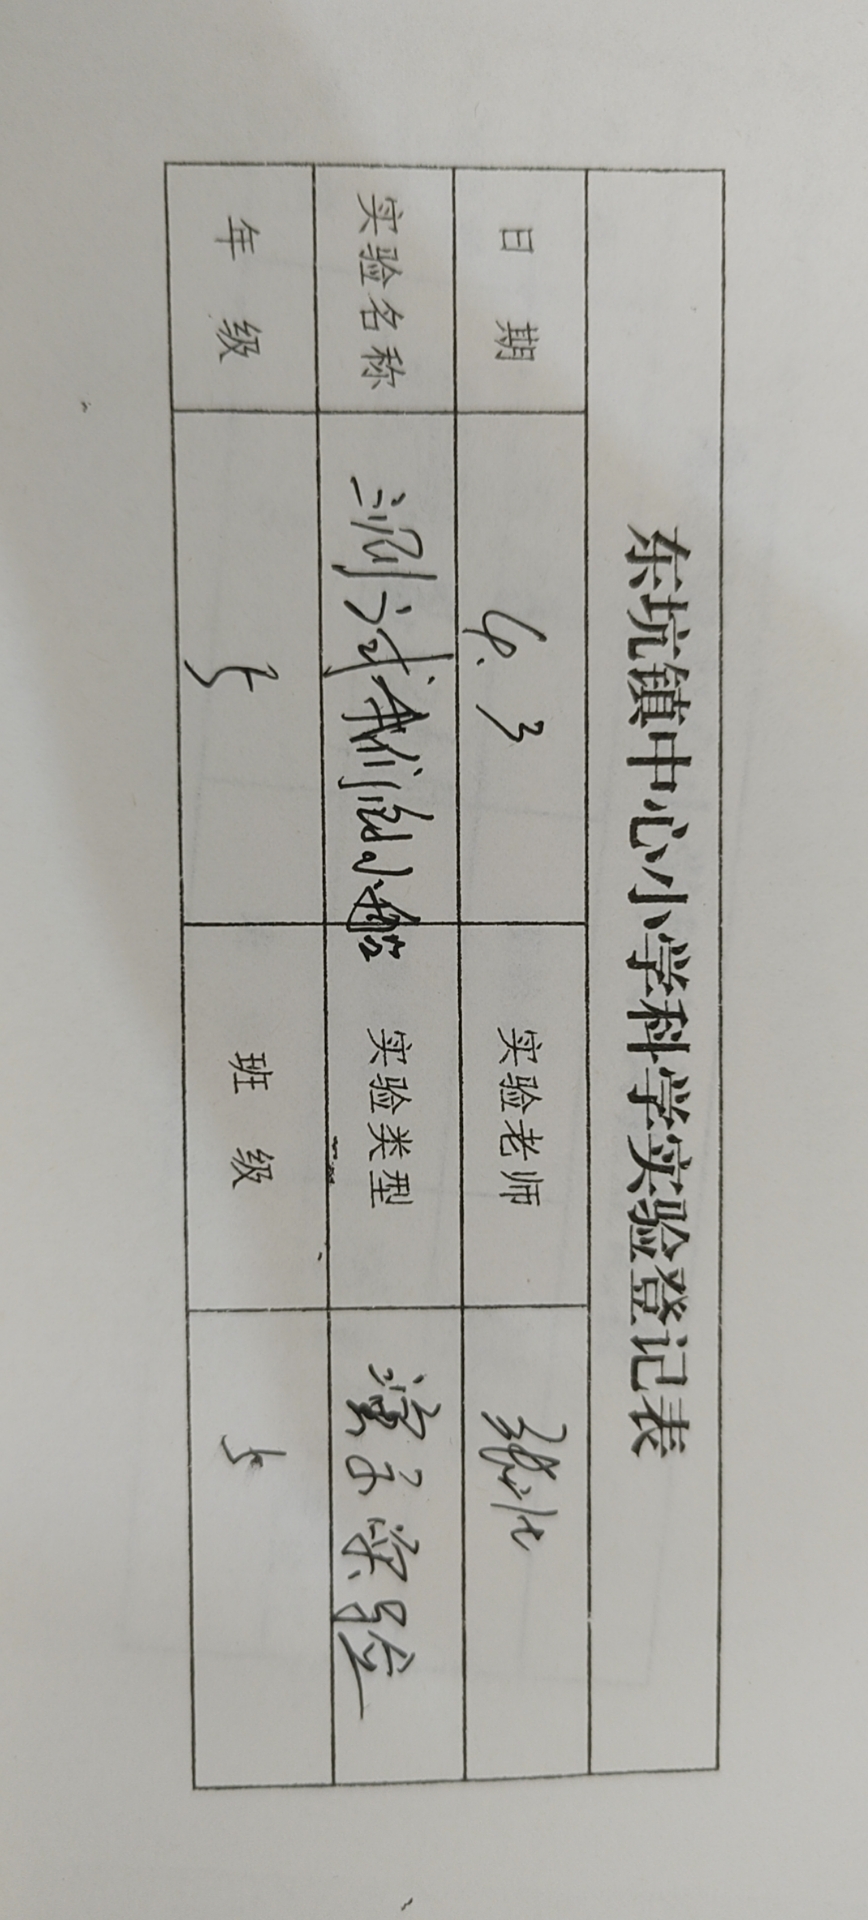 东坑镇中心小学科学实验登记表
日 期 4.3 实验老师
实验名称 测试我们的小船 实验类型 演示实验
年 级 五 班 级 5